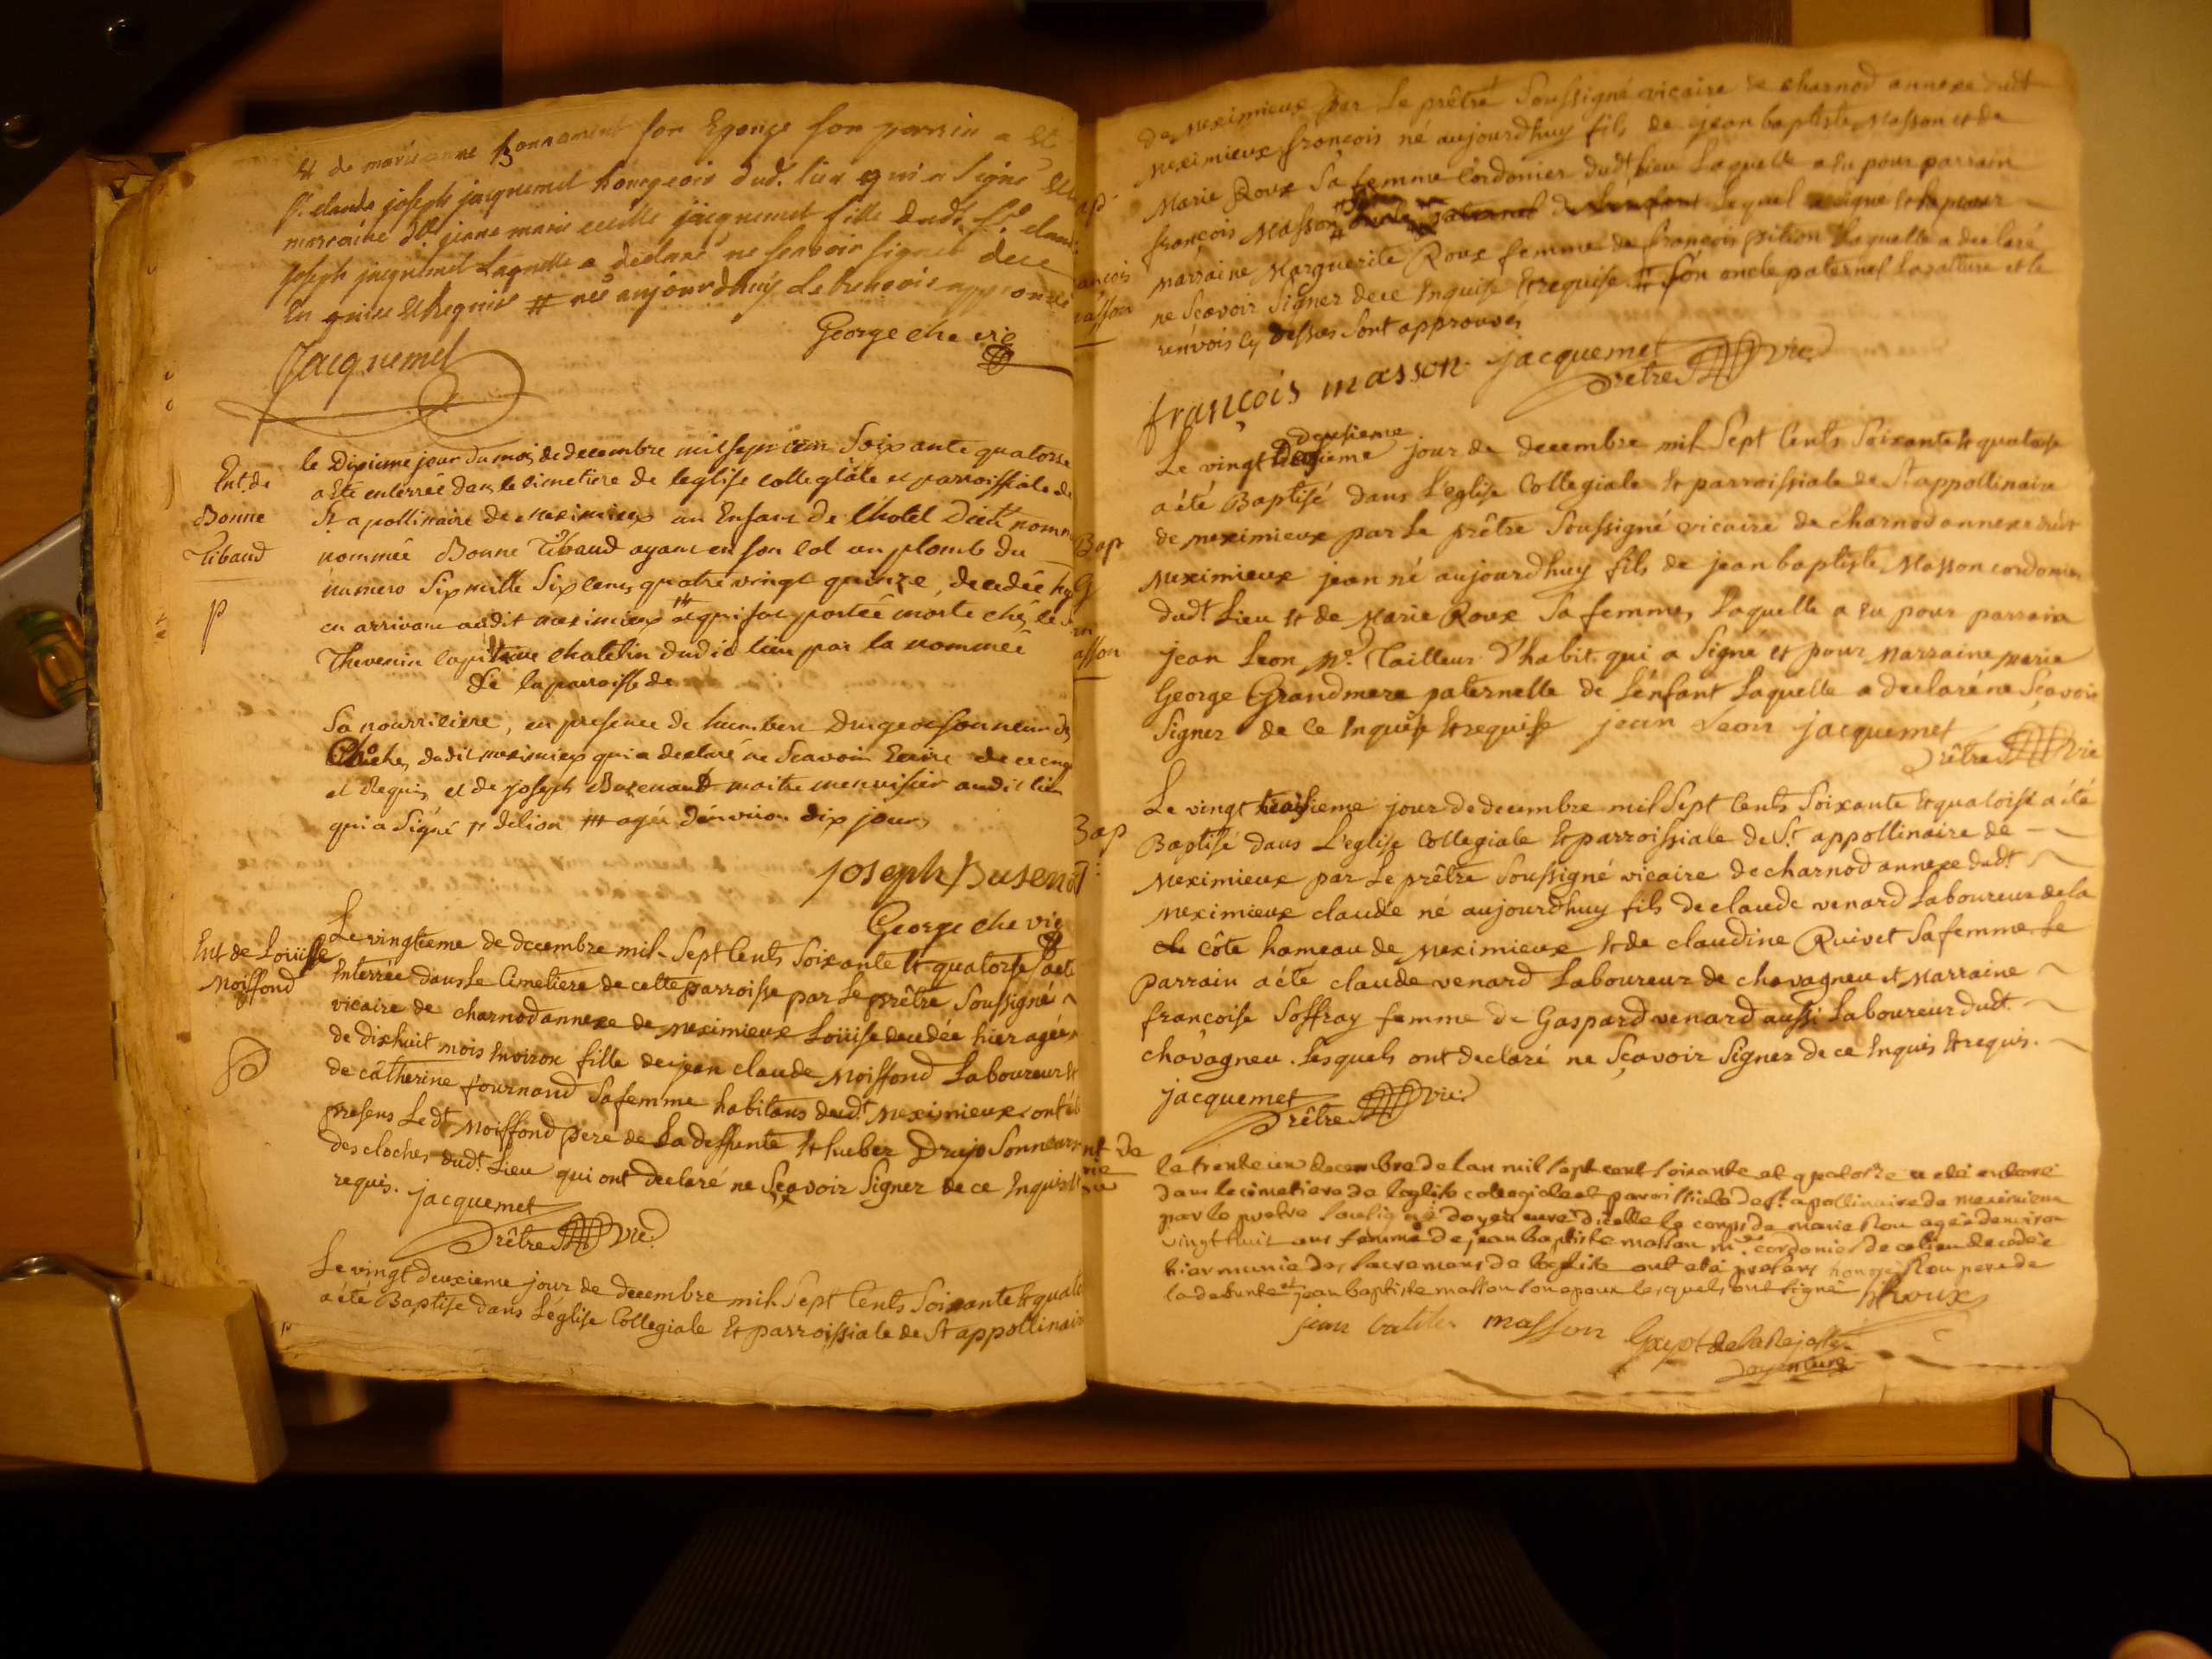 Et de marie anne Bonnament son Epouse son parrin a Eté
Sr. claude joseph jacquemet bourgeois dud. lieu qui a signé Et
marraine dlle. jeane marie cecille jacquemet fille dudt. Sr. claude
joseph jacquemet Laquelle a declaré ne scavoir signer dece
En quise Et Requise # née aujourdhuy le renvoie approuvé
Jacquemet
George che vic
Ent. de
Bonne
Tibaud
p
le Dixieme jour du mois de decembre mil sept cem Soixante quatorse
a Eté enterrée dans le cimetiere de leglise collegiale et parroissiale de
St apollinaire de meximieux un Enfant de l'hotel Dieu nom
nommée Bonne Tibaud ayant en son col un plomb du
numero Six mille Six cens quatre vingt quinze, decedée
en arrivant audit meximieux et qui fut portée morte ché le
Thevenin capitaine chatelin dudit lieu par la nommée
de la parroisse de
Sa nourriciere, en presence de humbert Drugeo sonneur de
Cloches dudit meximieux qui a declaré ne Scavoir Ecrire de ce enquis
et Requis et de joseph Busenaud maitre menuisier audit lieu
qui a Signé # de lion ## agée d'environ dix jours
joseph Busenod
George che vic
Ent de Loüise
Moiffond
Le vingtieme de decembre mil Sept Cents Soixante Et quatorse a eté
Enterrée dans Le Cimetiere de cette parroisse par Le prêtre Soussigné
vicaire de charnod annexe de meximieux Loüise decedée hier agée
de dixhuit mois Environ fille de jean claude Moiffond Laboureur Et
de câtherine fournand Sa femme habitans dudt. Meximieux ont été
presens Ledt. Moiffond pere de La deffunte Et huber Drujo Sonneur
des cloches dudt. Lieu qui ont declaré ne Sçavoir Signer de ce Enquis Et
requis. jacquemet
Prêtre Vic.
Le vingt deuxieme jour de decembre mil Sept Cents Soixante Et quato
a éte Baptisé dans Leglise Collegiale Et parroissiale de St appollinair
ap
ancois
asson
de Meximieux par Le prêtre Soussigné vicaire de charnod annexe dudt
Meximieux françois né aujourdhuy fils de jean baptiste Masson et de
Marie Roux Sa femme Cordonier dudt. Lieu Laquelle a Eu pour parrain
françois Masson # oncle paternel de Lenfant Lequel a signé Et pour
marraine Marguerite Roux femme de françois pition Laquelle a declaré
ne Sçavoir Signer dece Enquise Et requise. # son oncle paternel La rature et le
renvois cy dessus Sont approuves
françois masson jacquemet
Prêtre Vic.
Bap
asson
Le vingt deusieme jour de decembre mil Sept Cents Soixante Et quatorse
a été Baptisé dans L'eglise Collegiale Et parroissiale de St appollinaire
de meximieux par Le prêtre Soussigné vicaire de charnod annexe dudt
Meximieux jean né aujourdhuy fils de jean baptiste Masson cordonier
dudt. Lieu Et de Marie Roux Sa femme, Laquelle a Eu pour parrain
jean Leon Me. Tailleur d'habit qui a Signé et pour Marraine marie
George Grandmere paternelle de L'enfant Laquelle a declaré ne Sçavoir
Signer de ce Enquise Et requise jean Leon jacquemet
Prêtre Vic
Bap
Le vingt troisieme jour de decembre mil Sept Cents Soixante Et quatorse a été
Baptisé dans L'eglise Collegiale Et parroissiale de St. appollinaire de
Meximieux par Le prêtre Soussigné vicaire de charnod annexe dudt
Meximieux claude né aujourdhuy fils de claude venard Laboureur de la
côte hameau de Meximieux Et de claudine Ruivet Sa femme Le
parrain a été claude venard Laboureur de chavagneu et Marraine
françoise Soffray femme de Gaspard venard aussi Laboureur dudt.
chavagneu. Lesquels ont declaré ne Sçavoir Signer de ce Enquis Et requis.
jacquemet
Prêtre Vic.
nt de
le trente un decembre de lan mil sept cent soixante et quatorze a eté enterré
dans le cimetiere de leglise collegiale et parroissiale de st. apollinaire de meximieux
par le pretre soussigné doyen curé d'icelle le corps de marie Rou agée denviron
vingt huit ans femme de jean baptiste masson me. cordonier de ce lieu decedée
hier munie des sacremens de leglise ont eté presens honoré Rou pere de
la defunte et jean baptiste masson son epoux lesquels ont signé Roux
jean batiste masson
doyen curé